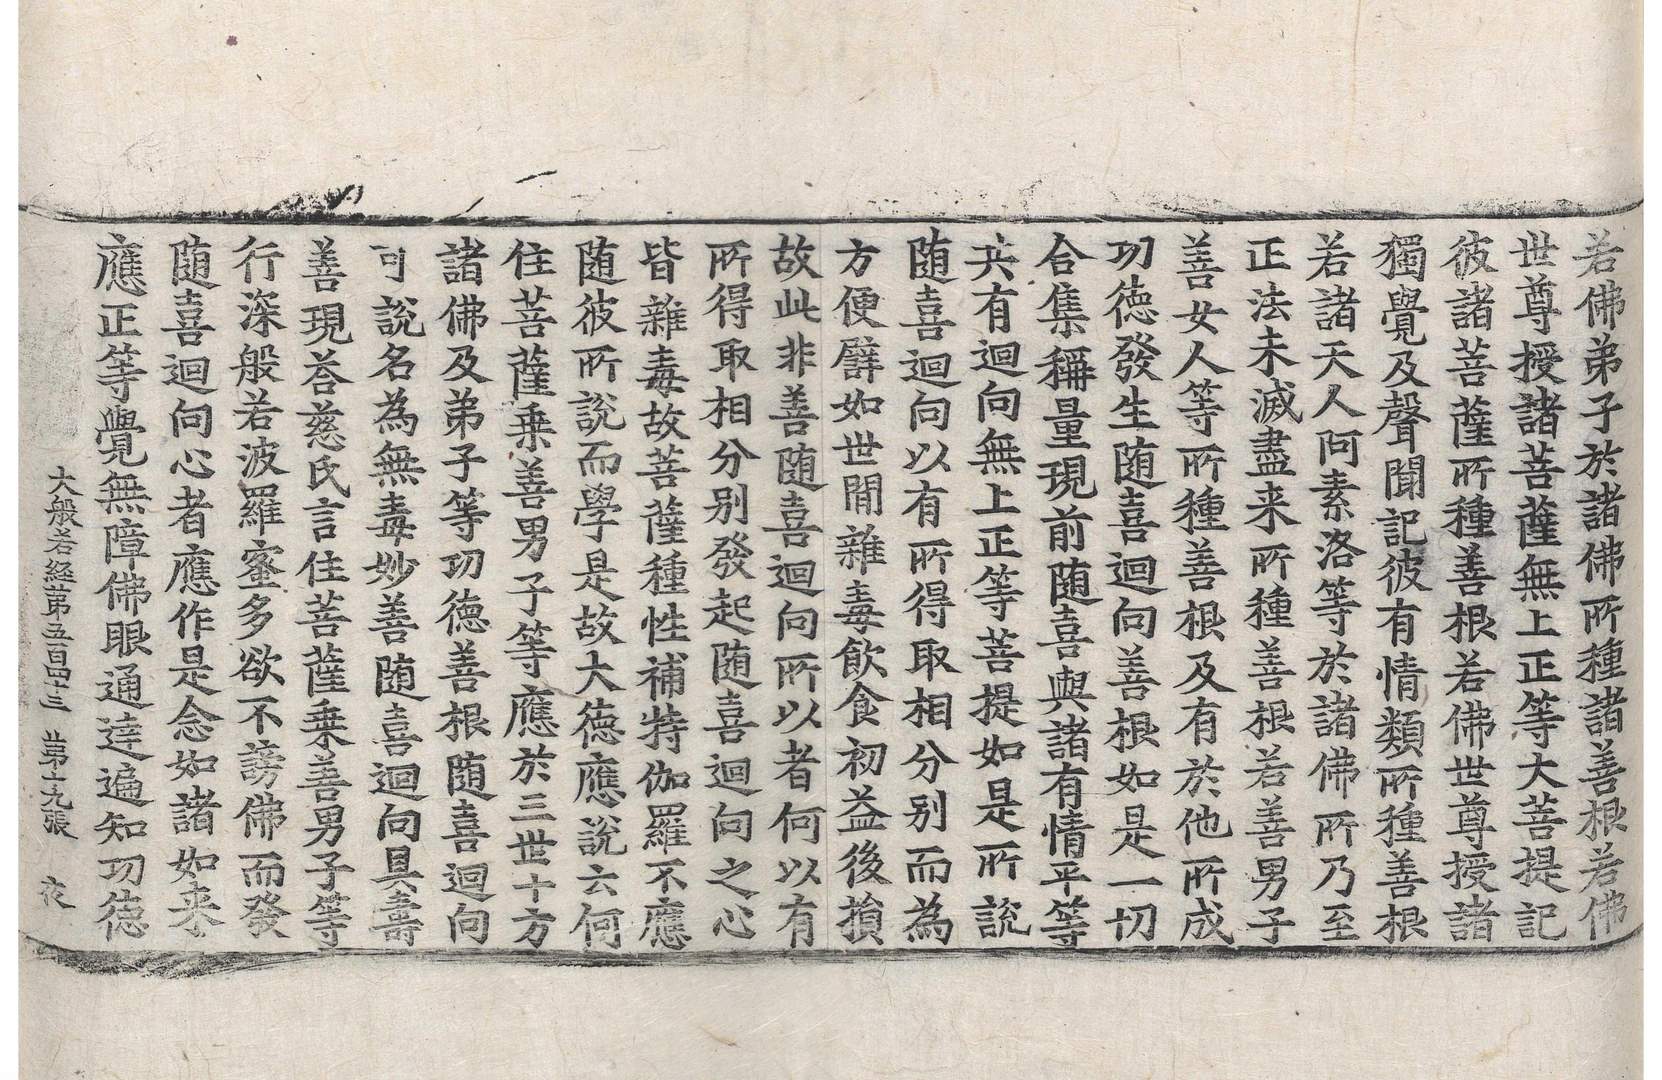 若佛弟子於諸佛所種諸善根若佛
世尊授諸菩薩無上正等大菩提記
彼諸菩薩所種善根若佛世尊授諸
獨覺及聲聞記彼有情類所種善根
若諸天人阿素洛等於諸佛所乃至
正法未滅盡来所種善根若善男子
善女人等所種善根及有於他所成
功德發生随喜迴向善根如是一切
合集稱量現前随喜與諸有情平等
共有迴向無上正等菩提如是所說
随喜迴向以有所得取相分别而為
方便譬如世閒雜毒飲食初益後損
故此非善随喜迴向所以者何以有
所得取相分别發起随喜迴向之心
皆雜毒故菩薩種性補特伽羅不應
随彼所說而學是故大德應說云何
住菩薩乗善男子等應於三世十方
諸佛及弟子等功德善根随喜迴向
可說名為無毒妙善随喜迴向具壽
善現荅慈氏言住菩薩乗善男子等
行深般若波羅蜜多欲不謗佛而發
随喜迴向心者應作是念如諸如来
應正等覺無障佛眼通達遍知功德
大般若經第五百四十三 第十九張 衣